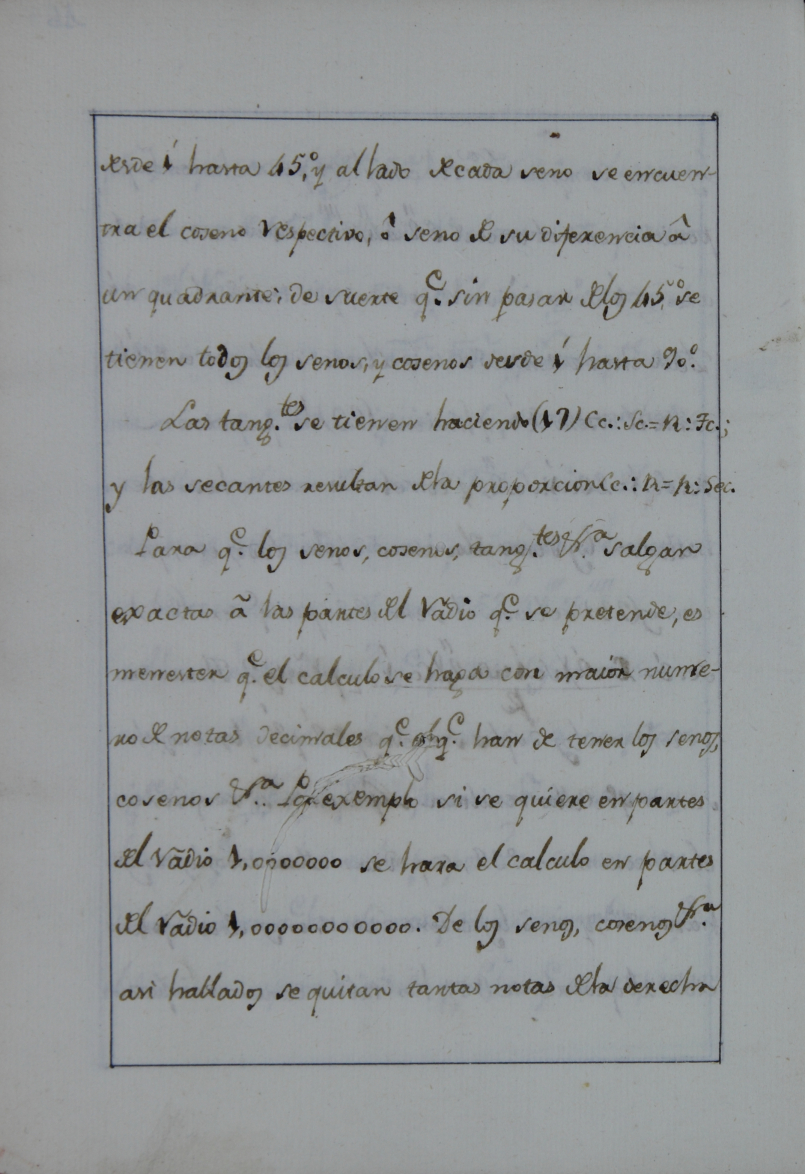 desde 1' hasta 45.º y al lado de cada seno se encuen-
tra el coseno respectivo, ô seno de su diferencia â
un quadrante; de suerte q.e sin pasar de los 45.º se
tienen todos los senos, y cosenos desde 1' hasta 90.º
Las tang.tes se tienen haciendo (17) Cc.: Sc.= R: Tc.;
y las secantes resultan de la proporcion Cc.: R= R: Sec.
Para q.e los senos, cosenos, tang.tes &.a salgan
exactas â las partes del radio q.e se pretende, es
menester q.e el calculo se haga con maior nume-
ro de notas decimales q.e q.e han de tener los senos,
cosenos &.a Por exemplo si se quiere en partes
del radio 1,0000000 se hara el calculo en partes
del radio 1,00000000000. De los senos, cosenos &.a
asi hallados se quitan tantas notas de la derecha